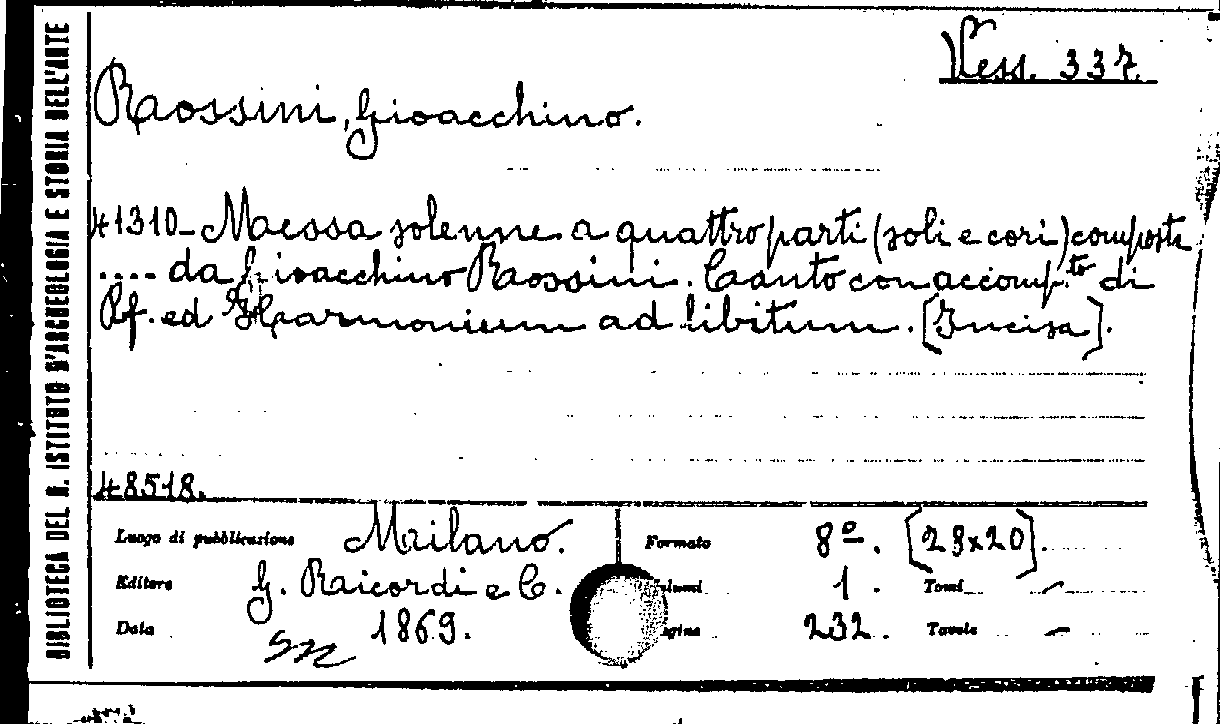 BIBLIOTECA DEL R. ISTITUTO D'ARCHEOLOGIA E STORIA DELL'ARTE
Vess. 337.
Rossini, Gioacchino.
41310 - Messa solenne a quattro parti (soli e cori) composta
.... da Gioacchino Rossini. Canto con accomp.to di
Pf. ed Harmonium ad libitum. [Incisa].
48518.
Luogo di pubblicazione Milano. Formato 8º. [29x20].
Editore G. Ricordi e C. Volumi 1. Tomi —
Data 1869. Pagine 232. Tavole —